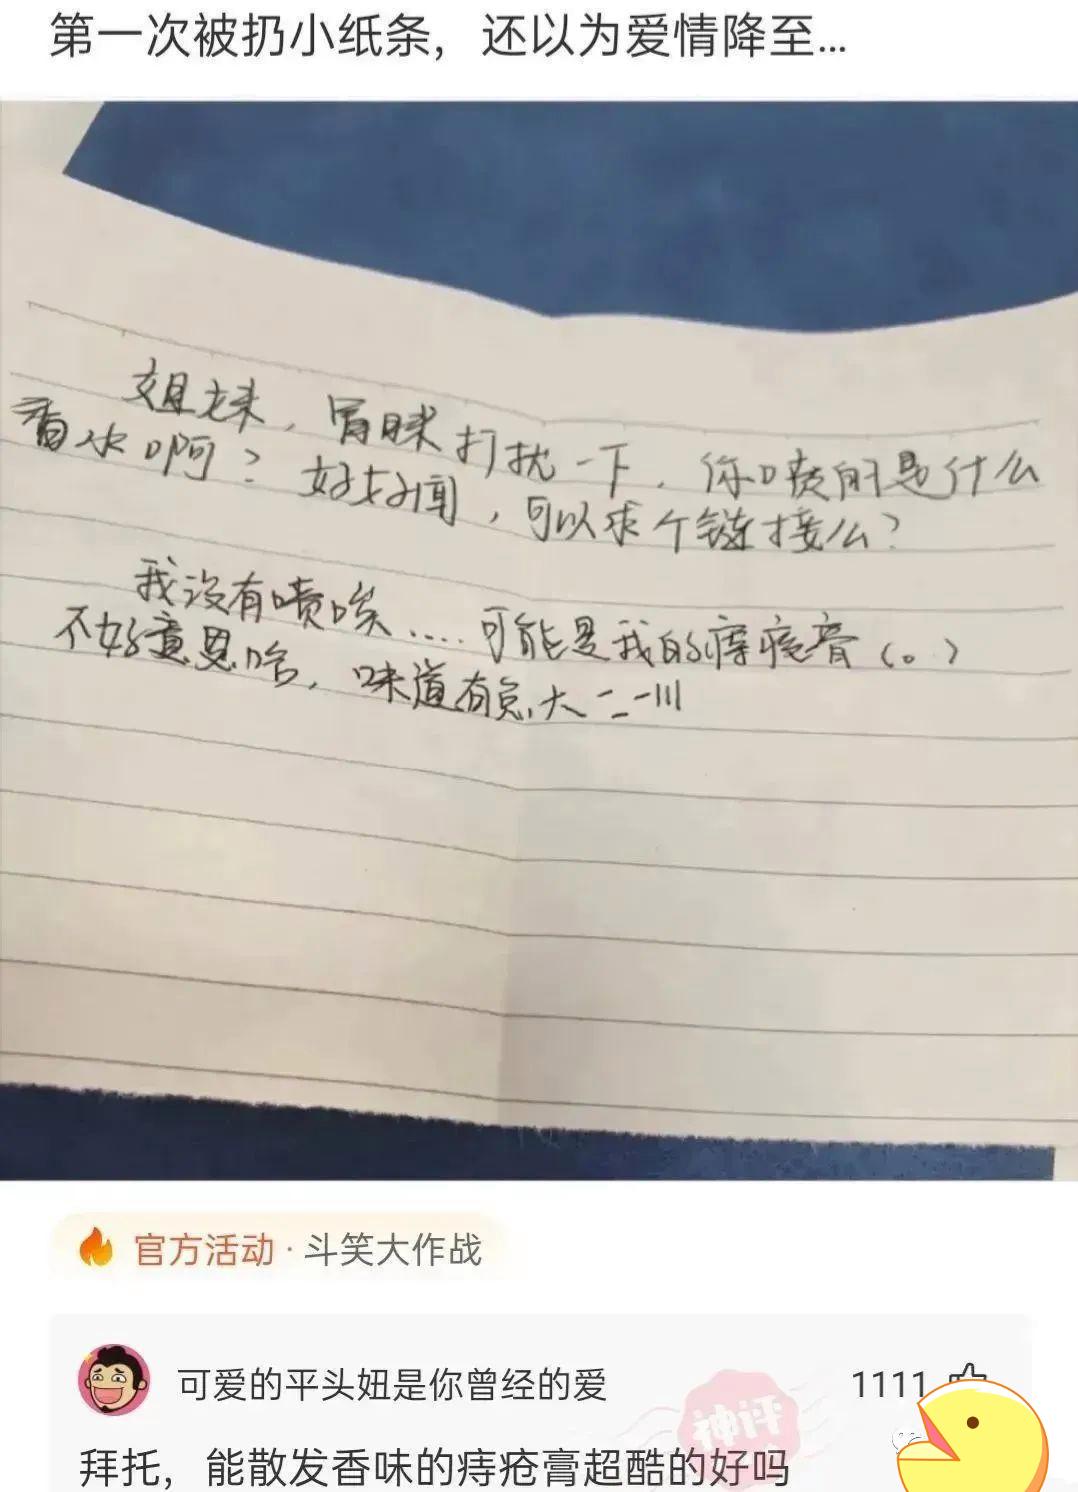 第一次被扔小纸条，还以为爱情降至...
姐妹，冒昧打扰一下，你喷的是什么
香水啊？好好闻，可以求个链接么？
我没有喷唉....可能是我的痔疮膏（。）
不好意思哈，味道有点大 二一川
官方活动·斗笑大作战
可爱的平头妞是你曾经的爱
1111
神评
拜托，能散发香味的痔疮膏超酷的好吗